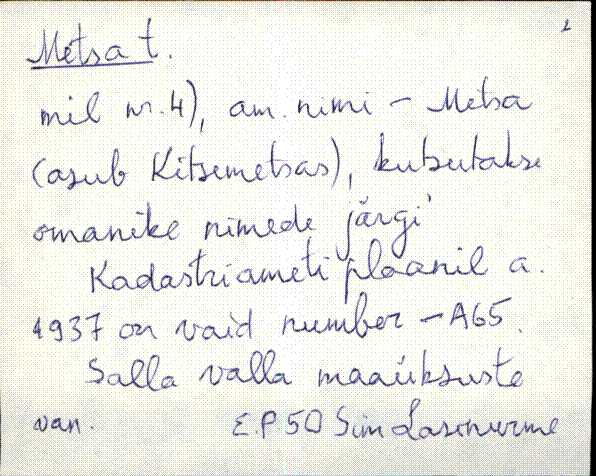 2
Metsa t.
mil nr. 4), am. nimi - Metsa
(asub Kitsemetsas), kutsutakse
omanike nimede järgi
Kadastriameti plaanil a.
1937 on vaid number - A65.
Salla valla maaüksuste
van. E.P 50 Sim Lasinurme